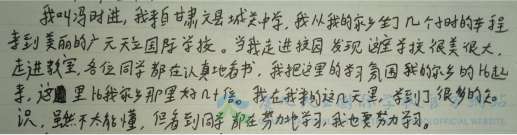 我叫冯时进，我来自甘肃文县城关中学，我从我的家乡坐了几个小时的车程
来到美丽的广元天立国际学校。当我走进校园发现这座学校很美很大，
走进教室，各位同学都在认真地看书，我把这里的学习氛围我的家乡的比起
来，这里比我家乡那里好几十倍。我在我来的这几天里，学到了很多的知
识，虽然不太能懂，但看到同学都在努力地学习，我也要努力学习。